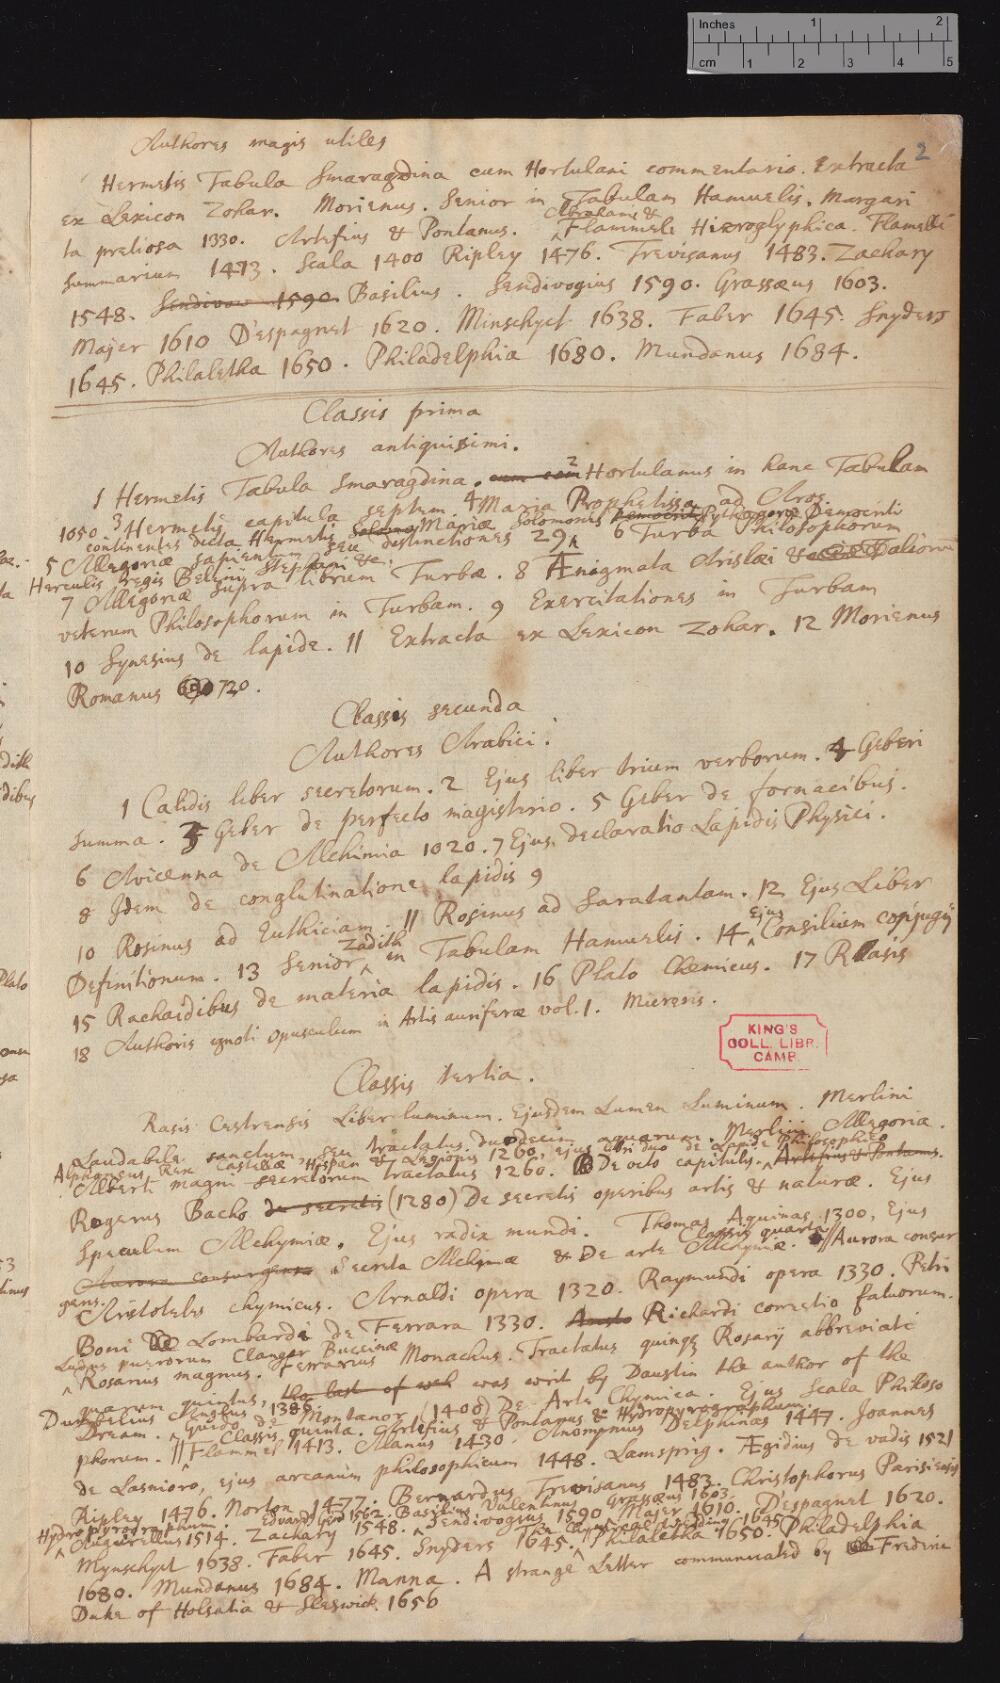 Inches 1 2
cm 1 2 3 4 5
2
Authores magis utiles
Hermetis Tabula Smaragdina cum Hortulani commentario. Extracta
ex Lexicon Zohar. Morienus. Senior in Tabulam Hamuelis. Margari
Abrahami &
ta pretiosa 1330. Artefius & Pontanus. Flammeli Hieroglyphica. Flamelli
Summarium 1413. Scala 1400 Ripley 1476. Trevisanus 1483. Zachary
1548. Sendivow 1590. Basilius. Sendivogius 1590. Grassæus 1603.
Majer 1610 D'espagnet 1620. Minschyct 1638. Faber 1645. Snyders
1645. Philaletha 1650. Philadelphia 1680. Mundanus 1684.
Classis prima
Authores antiquissimi.
1 Hermetis Tabula Smaragdina. 2 Hortulanus in hanc Tabulam
1050 3 Hermetis capitula septem 4 Maria Prophetissa ad Aros.
continentes dicta Hermetis Mariæ Solomonis Pythagoræ Democriti
5 Allegoriæ sapientum seu distinctiones 29 6 Turba Philosophorum
Herculis regis Bellini Stephani &c.
7 Allegoriæ supra librum Turbæ. 8 Ænigmata Arislæi & aliorum
veterum Philosophorum in Turbam. 9 Exercitationes in Turbam
10 Synesius de lapide. 11 Extracta ex Lexicon Zohar. 12 Morienus
Romanus 720.
Classis secunda
Authores Arabici.
1 Calidis liber secretorum. 2 Ejus liber trium verborum. 4 Geberi
summa. 3 Geber de perfecto magisterio. 5 Geber de fornacibus.
6 Avicenna de Alchimia 1020. 7 Ejus declaratio Lapidis Physici.
8 Idem de conglutinatione lapidis 9
10 Rosinus ad Euthiciam 11 Rosinus ad Saratantam. 12 Ejus Liber
Zadith
Ejus
Definitionum. 13 Senior in Tabulam Hamuelis. 14 Consilium conjugij
15 Rachaidibus de materia lapidis. 16 Plato Chemicus. 17 Rasis
18 Authoris ignoti opusculum in Artis auriferæ vol. 1. Mieresis.
KING'S
COLL. LIBR.
CAMB.
Classis tertia.
Rasis Cestrensis Liber luminum. Ejusdem Lumen Luminum. Merlini
Laudabile sanctum, seu tractatus duodecim aquarum. Merlini Allegoria.
Alphonsus Rex Castellæ Hispan & Legionis 1260, ejus libri duo de Lapide Philosophico
Alberti magni secretorum tractatus 1260. De octo capitulis. Artefius & Pontanus.
Rogerus Bacho de secretis (1280) De secretis operibus artis & naturæ. Ejus
Speculum Alchymiæ. Ejus radix mundi. Thomas Aquinas 1300, Ejus
Classis quarta
Aurora consurgens Secreta Alchymiæ & De arte Alchymiæ. // Aurora consur
gens. Aristoteles chymicus. Arnaldi opera 1320. Raymundi opera 1330. Petri
Boni Lombardi de Ferrara 1330. Richardi correctio fatuorum.
Ludus puerorum Clangor Buccinæ
Rosarius magnus. Ferrarius Monachus. Tractatus quinque Rosarij abbreviati
quarum quintus, the last of wch was writ by Daustin the author of the
Dumbelius Anglus 1386
Dream. Guido de Montanor (1400) De Arte Chymica. Ejus Scala Philoso
Classis quinta. Artefius & Pontanus & Hydropyrographum
phorum. // Flammel 1413. Alanus 1430 Anonymus Delphinas 1447. Joannes
de Lasnioro, ejus arcanum philosophicum 1448. Lamsprig. Ægidius de vadis 1521
Ripley 1476. Norton 1477. Bernardus Trevisanus 1483. Christophorus Parisiensis
Hydropyrographum. Edvard Gen 1562. Basilius Valentinus Grassæus 1603.
Augurellus 1514. Zachary 1548. Sendivogius 1590 Majer 1610. D'espagnet 1620.
Mynschyct 1638. Faber 1645. Snyders 1645. Philaletha 1650. Philadelphia
1680. Mundanus 1684. Manna. A strange Letter communicated by Frederic
Duke of Holsatia & Sleswick. 1656